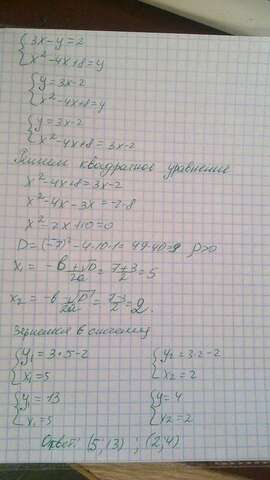 {3x-y=2
{x²-4x+8=y
{y=3x-2
{x²-4x+8=y
{y=3x-2
{x²-4x+8=3x-2
Решаем квадратное уравнение
x²-4x+8=3x-2
x²-4x-3x=-2-8
x²-7x+10=0
D=(-7)²-4·10·1=49-40=9, D>0
x₁=-b+√D/2a=7+3/2=5
x₂=-b-√D/2a=7-3/2=2.
Вернёмся в систему
{y₁=3·5-2 {y₂=3·2-2
{x₁=5 {x₂=2
{y₁=13 {y=4
{x₁=5 {x₂=2
Ответ: (5;13) ; (2;4)